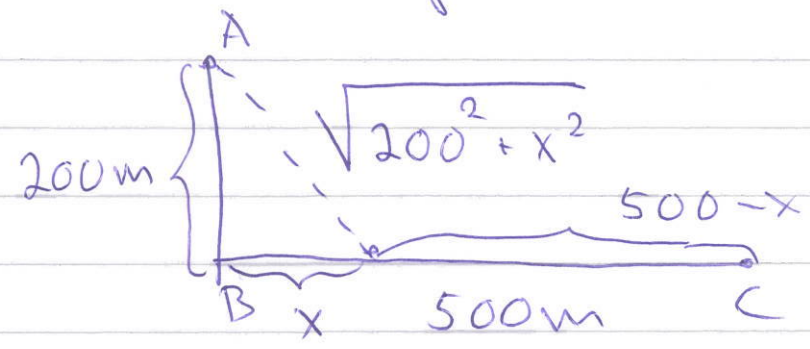 A
√200² + x²
200m
500 - x
B
x
500m
C